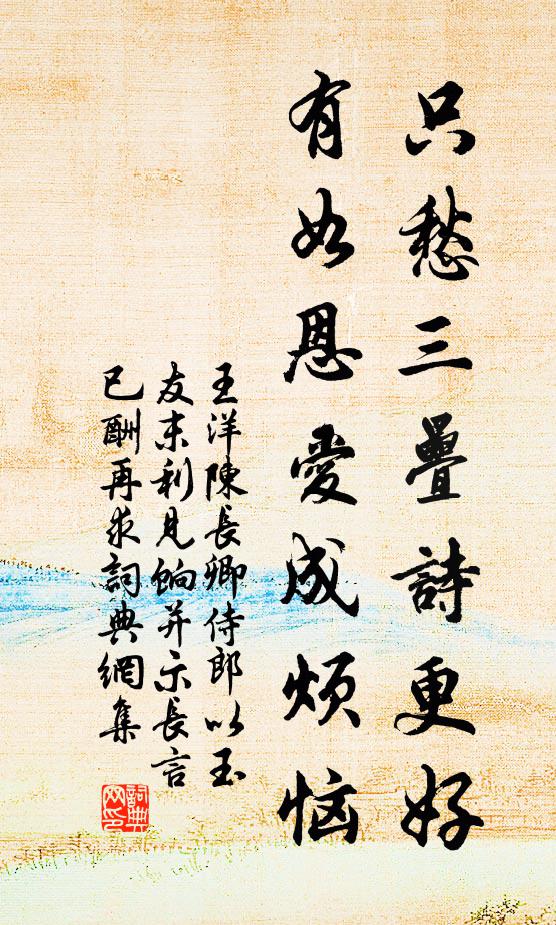 只愁三疊詩更好
有如恩愛成煩惱
王洋陳長卿侍郎以玉
友末利見餉并示長言
已酬再求詞典網集
詞典网印